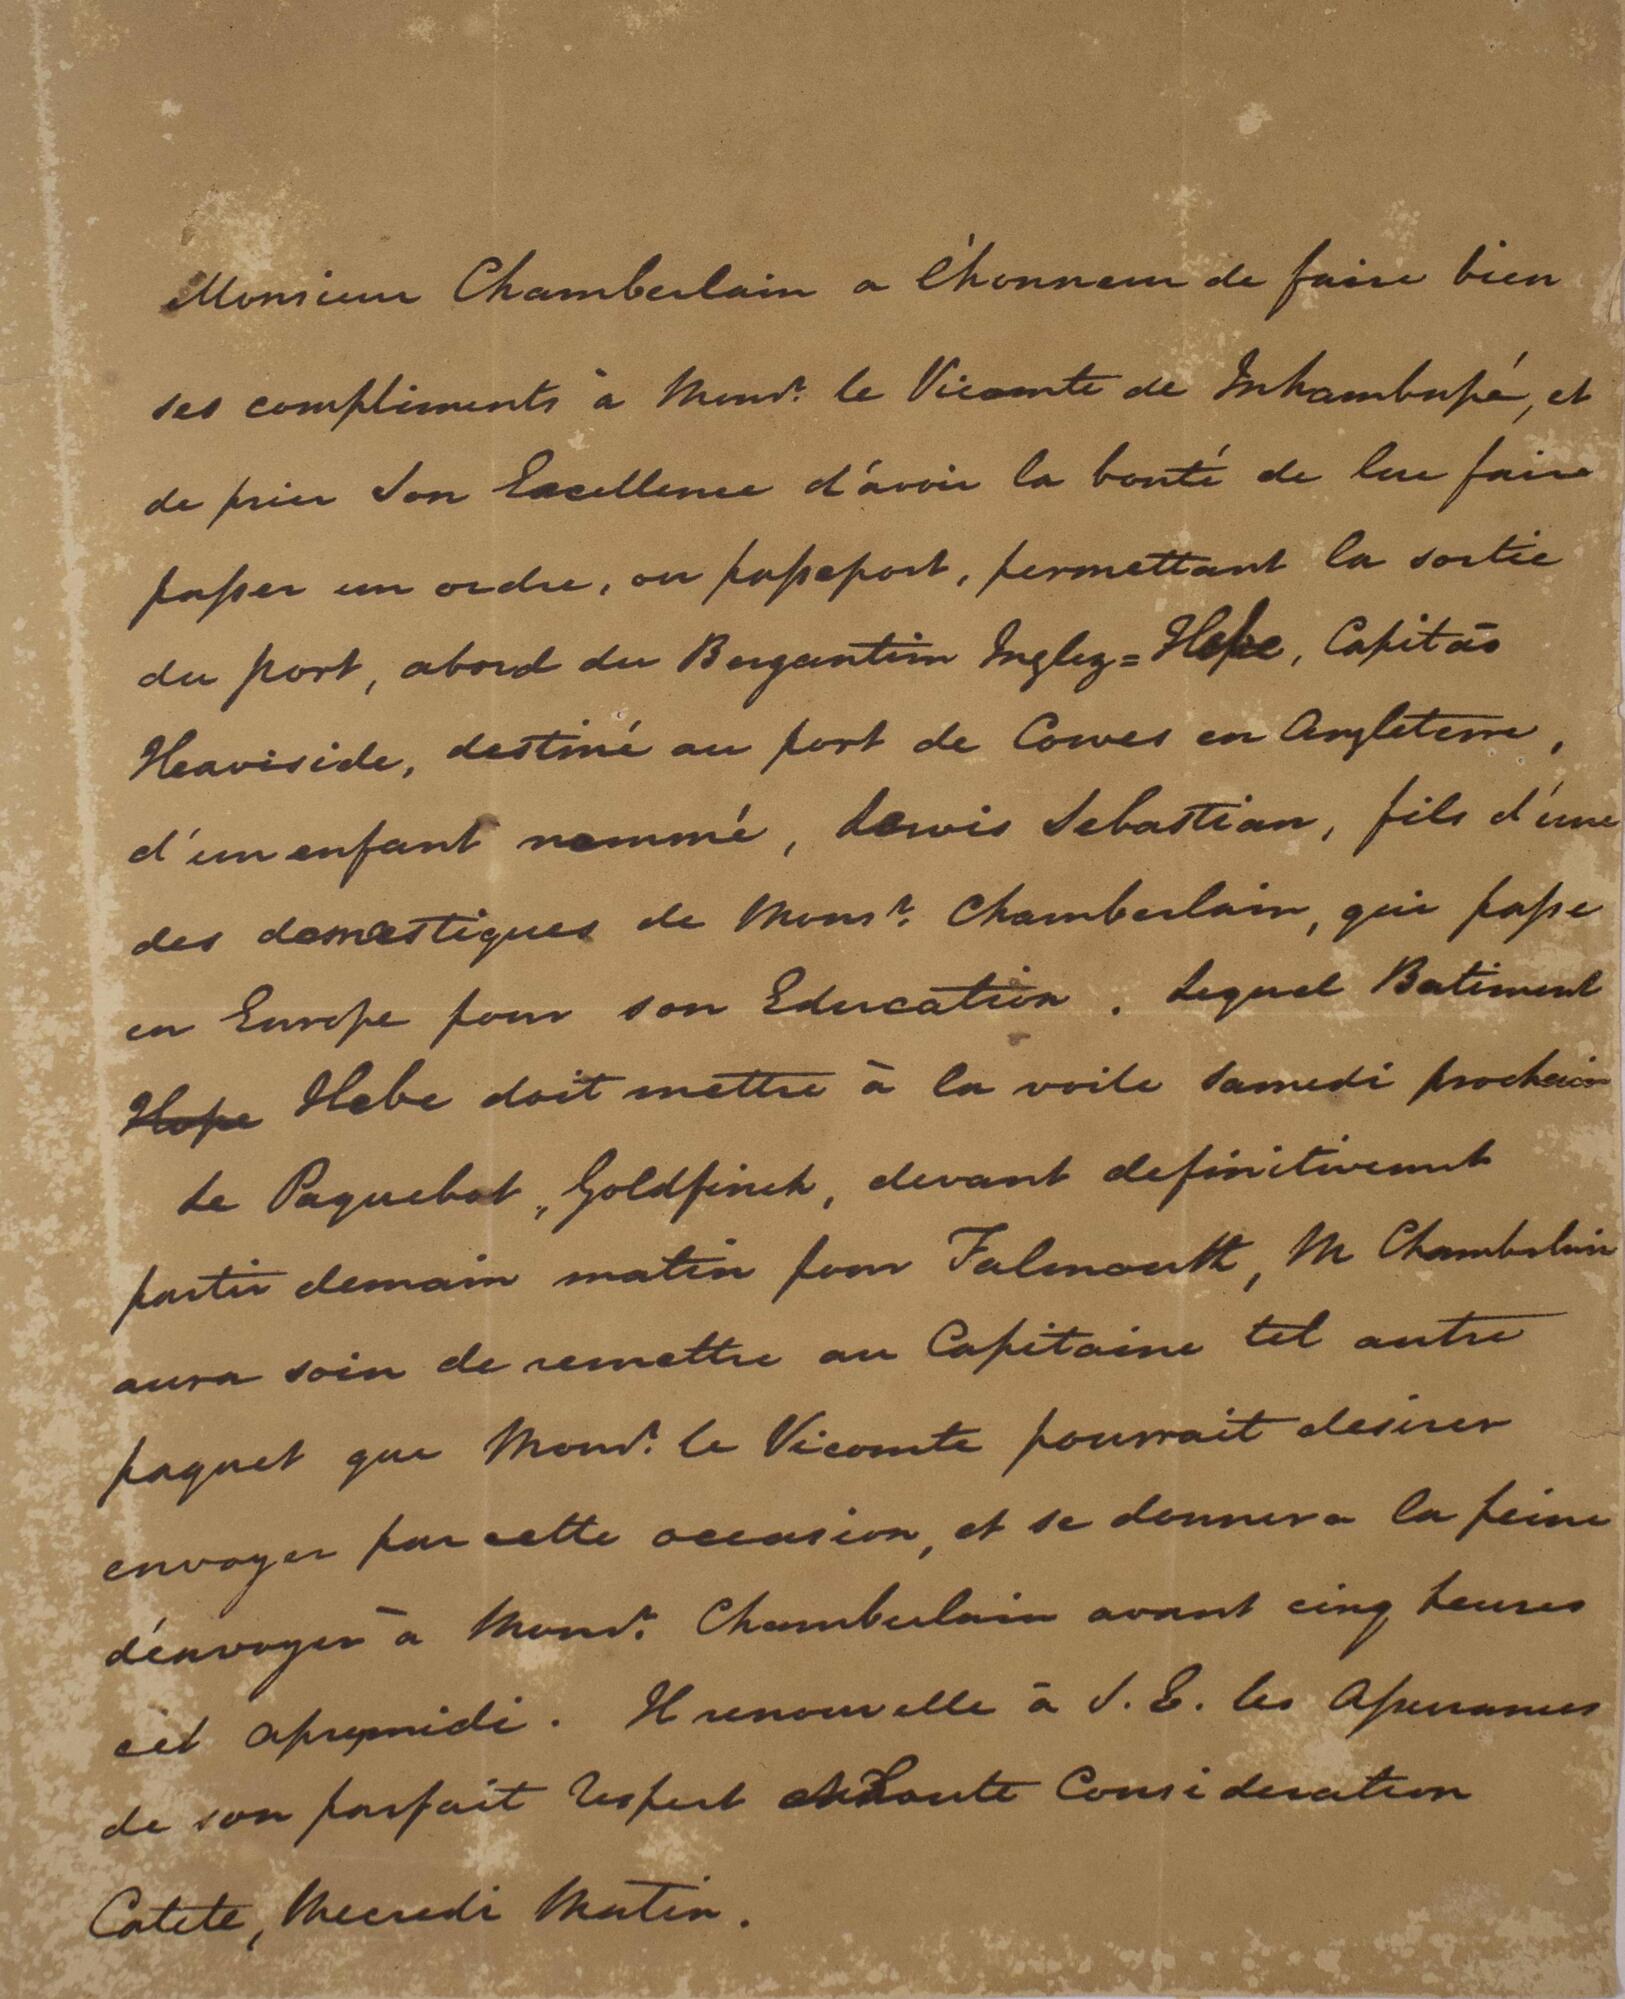 Monsieur Chamberlain a l'honneur de faire bien
ses compliments à Monsr. le Vicomte de Inhambupé, et
de prier Son Excellence d'avoir la bonté de lui faire
passer un ordre, ou passeport, permettant la sortie
du port, abord du Bergantim Inglez = Hebe, Capitão
Heaviside, destiné au port de Cowes en Angleterre,
d'un enfant nommé, Lewis Sebastian, fils d'une
des domestiques de Monsr. Chamberlain, qui passe
en Europe pour son Education. Lequel Batiment
Hope Hebe doit mettre à la voile Samedi prochain
Le Paquebot „Goldfinch, devant definitivement
partir demain matin pour Falmouth, M Chamberlain
aura soin de remettre au Capitaine tel autre
paquet que Monsr. le Vicomte pourrait desirer
envoyer par cette occasion, et se donnera la peine
d'envoyer à Monsr. Chamberlain avant cinq heures
cet apresmidi. Il renouvelle à S. E. les Assurances
de son parfait respect et haute Consideration
Catete, Mecredi Matin.